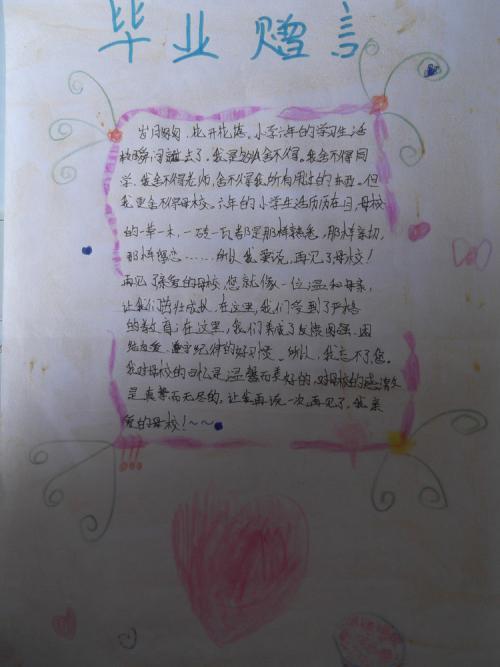 毕业赠言
岁月匆匆，花开花落。小学六年的学习生活
瞬间逝去了。我是多么舍不得。我舍不得同
学，我舍不得老师，舍不得我所有用过的东西。但
我更舍不得母校。六年的小学生活历历在目，母校
的一草一木，一砖一瓦都是那样熟悉，那样亲切，
那样留恋……所以我要说，再见了母校！
再见了亲爱的母校，您就像一位温和母亲，
让我们茁壮成长，在这里，我们受到了严格
的教育；在这里，我们养成了发愤图强、团
结友爱、遵守纪律的好习惯。所以，我忘不了您。
我对母校的回忆是温馨而美好的，对母校的感激
是真挚而无尽的，让我再说一次再见了，我亲
爱的母校！～～